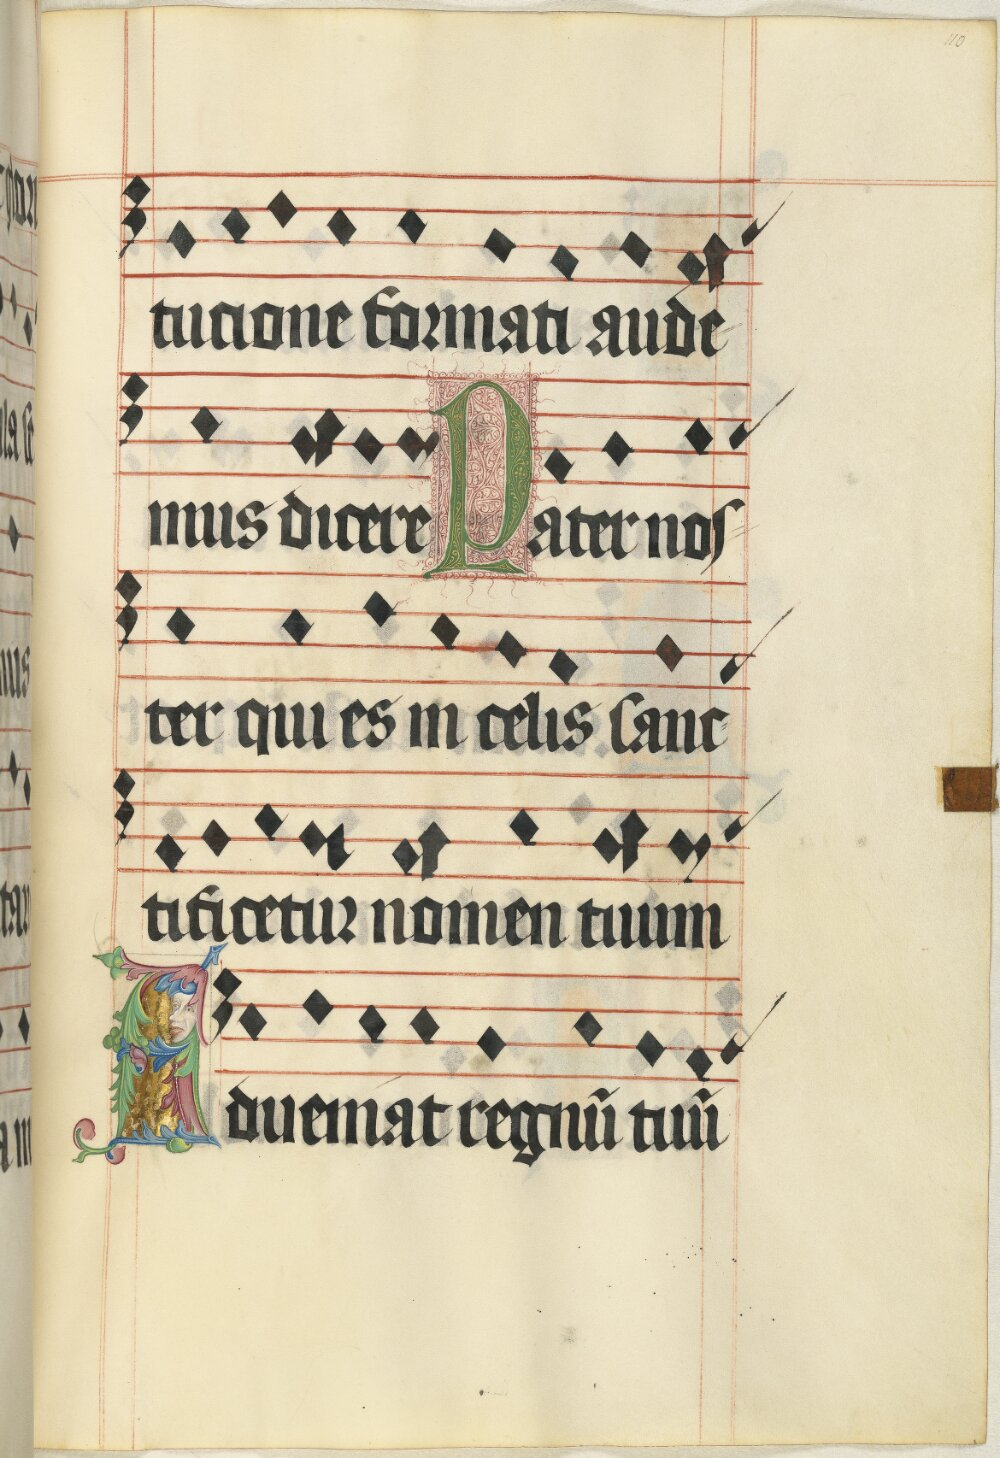 110
tucione formati aude
mus dicere Pater nos
ter qui es in celis Sanc
tificetur nomen tuum
Adueniat regnū tuū